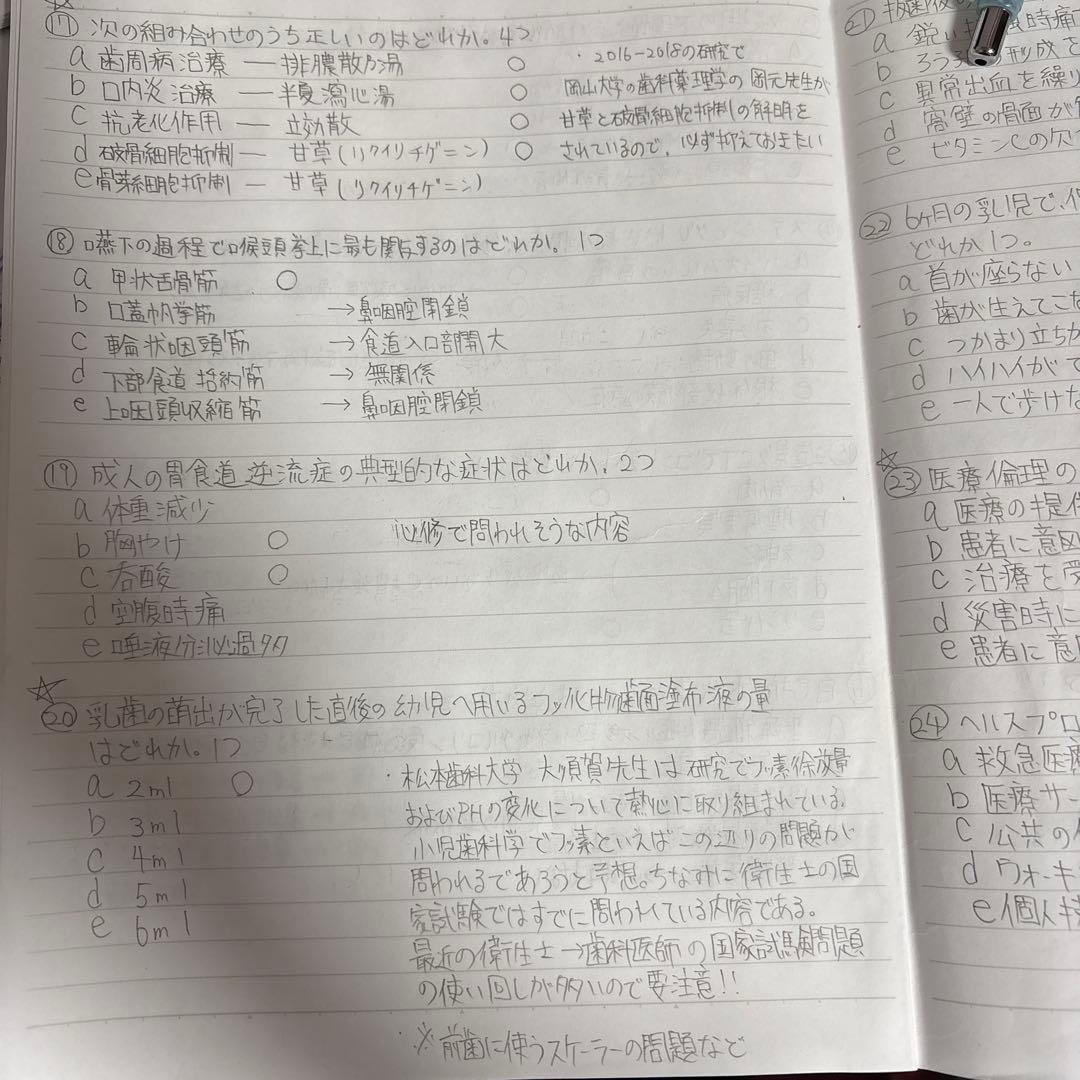 ⑰ 次の組み合わせのうち正しいのはどれか。4つ
a 歯周病治療 ― 排膿散乃湯 ○
b 口内炎治療 ― 半夏瀉心湯 ○
c 抗老化作用 ― 立効散 ○
d 破骨細胞抑制 ― 甘草(リクイリチゲニン) ○
e 骨芽細胞抑制 ― 甘草(リクイリチゲニン)
・2016-2018の研究で
岡山大学の歯科薬理学の岡元先生が
甘草と破骨細胞抑制の解明を
されているので、必ず抑えておきたい
⑱ 嚥下の過程で喉頭挙上に最も関与するのはどれか。1つ
a 甲状舌骨筋 ○
b 口蓋帆挙筋 →鼻咽腔閉鎖
c 輪状咽頭筋 →食道入口部開大
d 下部食道括約筋 → 無関係
e 上咽頭収縮筋 → 鼻咽腔閉鎖
⑲ 成人の胃食道逆流症の典型的な症状はどれか。2つ
a 体重減少
b 胸やけ ○
c 呑酸 ○
d 空腹時痛
e 唾液分泌過多
必修で問われそうな内容
☆
⑳ 乳歯の萌出が完了した直後の幼児へ用いるフッ化物歯面塗布液の量
はどれか。1つ
a 2ml ○
b 3ml
c 4ml
d 5ml
e 6ml
・松本歯科大学 大須賀先生は研究でフッ素徐放量
およびPHの変化について熱心に取り組まれている。
小児歯科学でフッ素といえばこの辺りの問題が
問われるであろうと予想。ちなみに衛生士の国
家試験ではすでに問われている内容である。
最近の衛生士→歯科医師の国家試験問題
の使い回しが多いので要注意!!
※前歯に使うスケーラーの問題など
21
a 鋭い
b
c 異常出血を繰り
d 窩壁の骨面が
e ビタミンCの欠
㉒ 6ヶ月の乳児で、
どれか1つ。
a 首が座らない
b 歯が生えてこな
c つかまり立ちが
d ハイハイがで
e 一人で歩けな
☆
㉓ 医療倫理の
a 医療の提供
b 患者に意図
c 治療を受
d 災害時に
e 患者に意
㉔ ヘルスプロ
a 救急医療
b 医療サー
c 公共の
d ウォーキ
e 個人